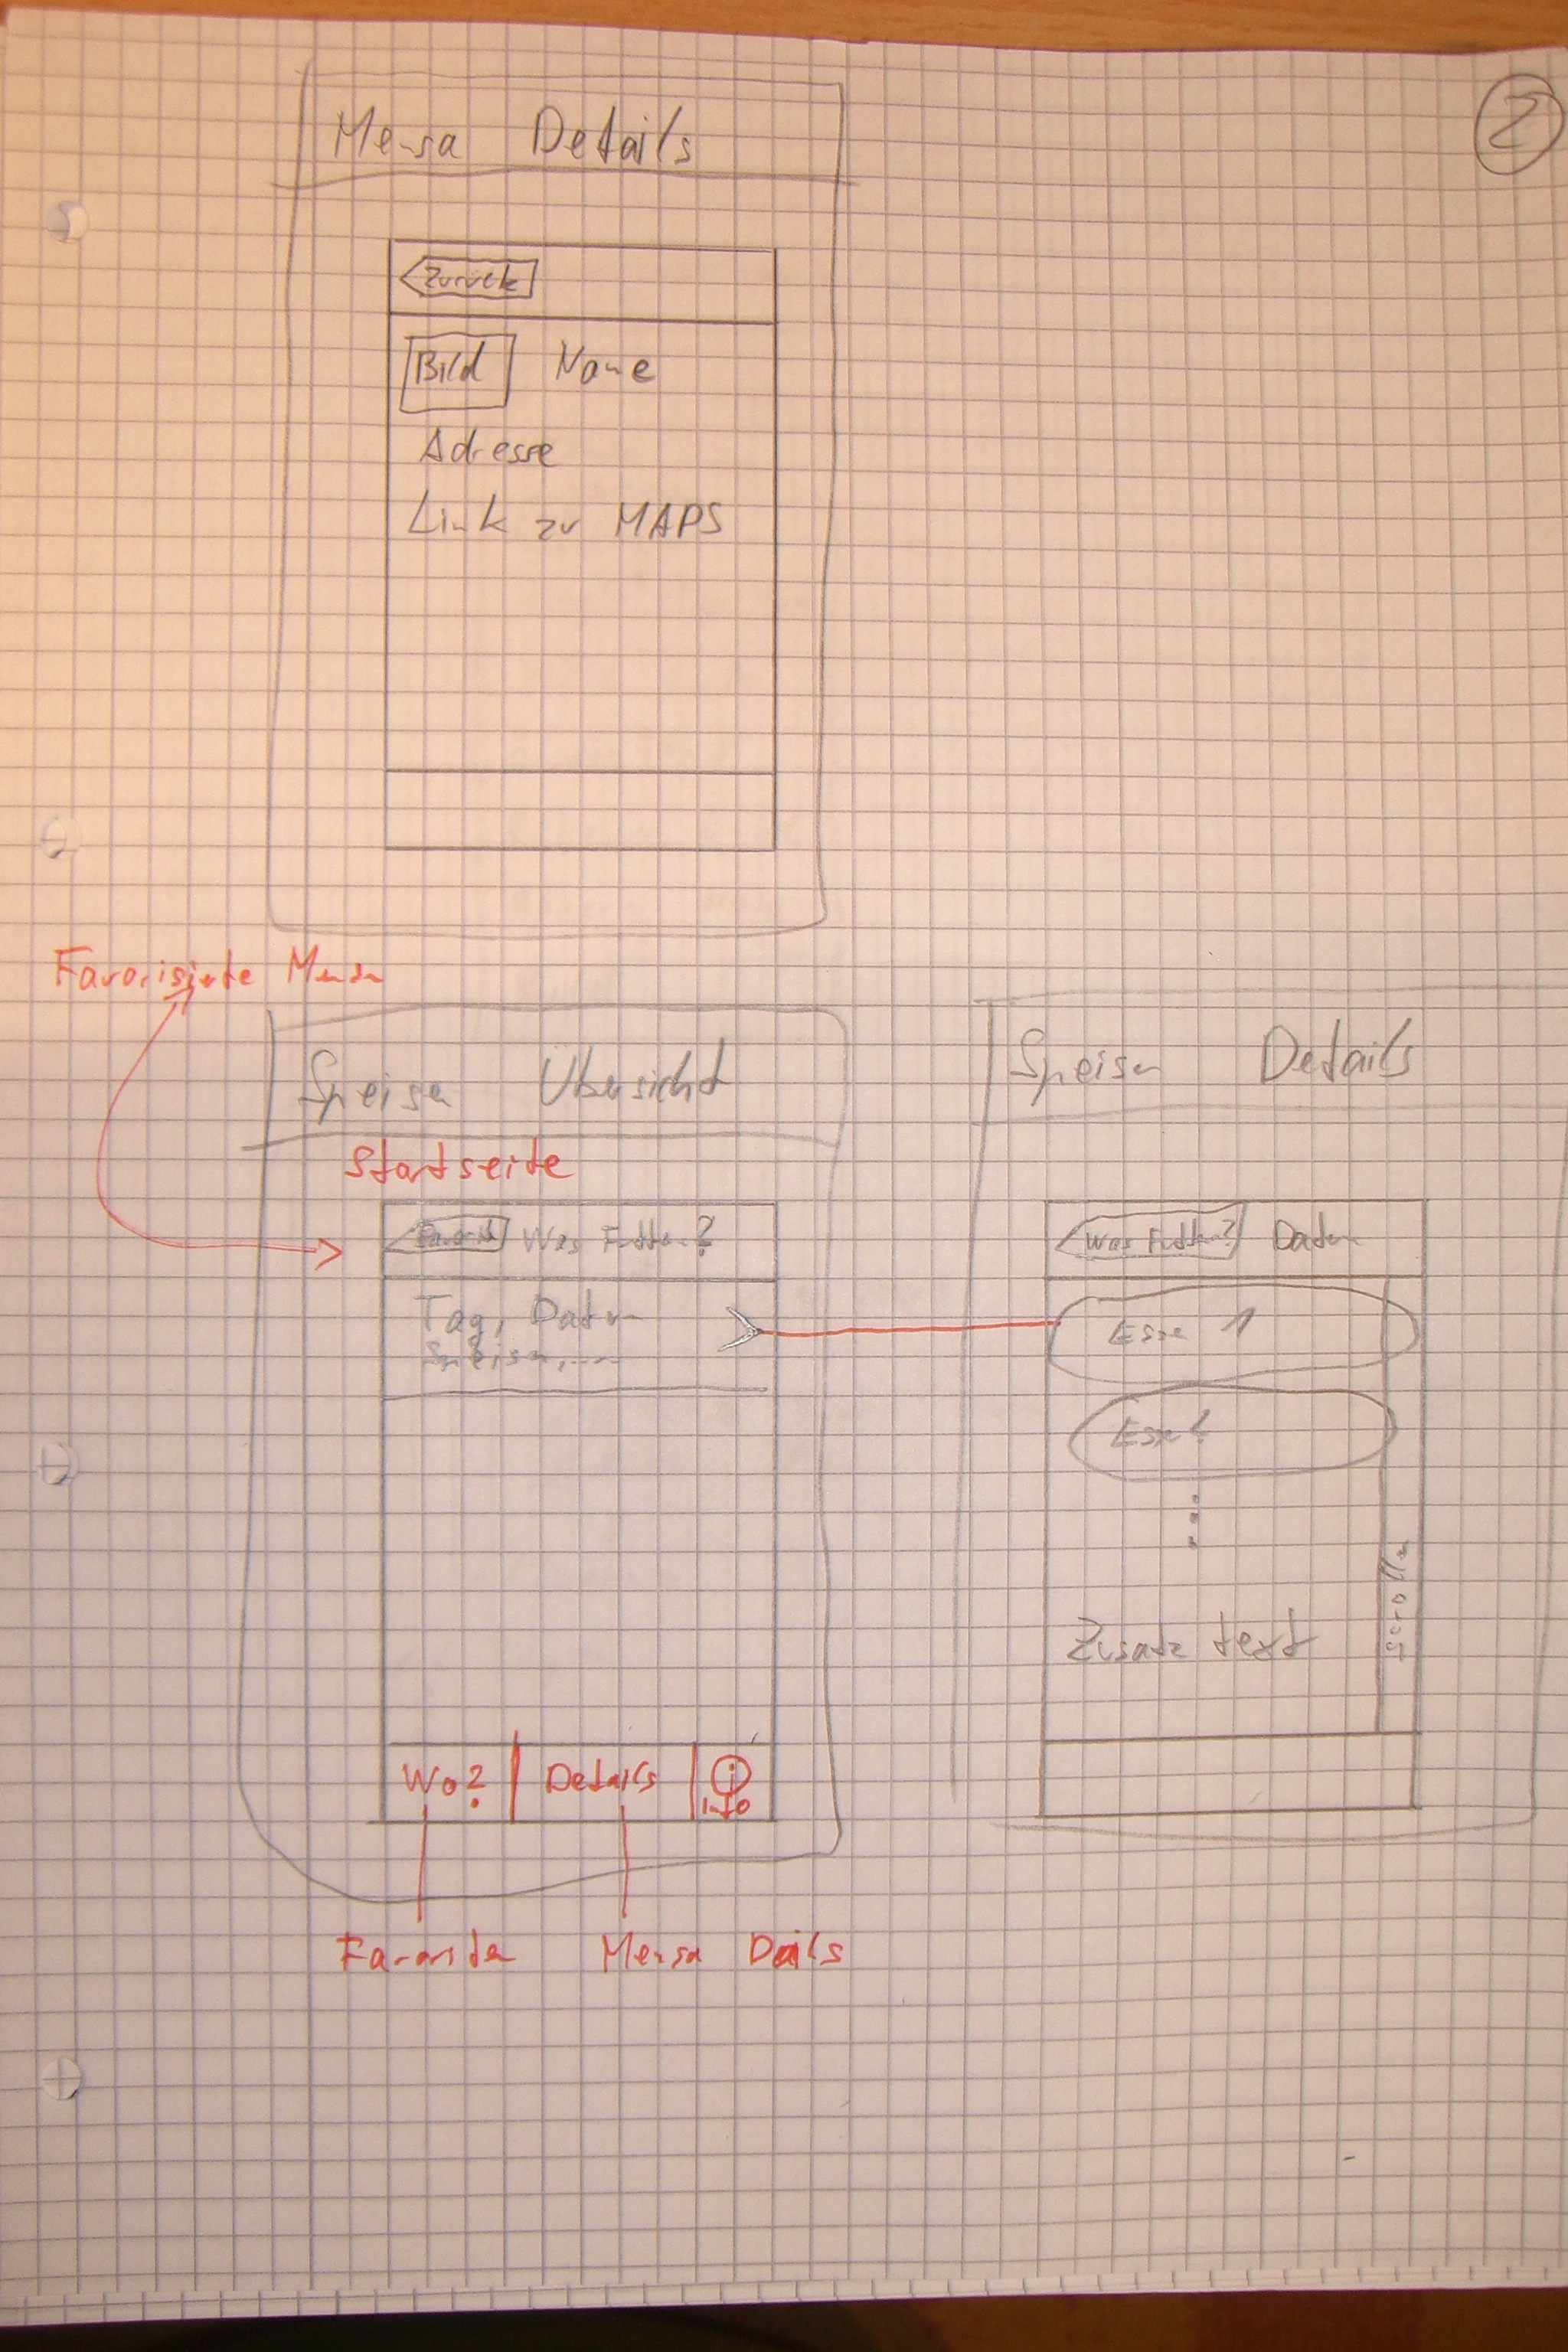 2
Mensa Details
Zurück
Bild Name
Adresse
Link zu MAPS
Favorisierte Mensa
Speisen Übersicht
Startseite
Favorit Was Futtern?
Tag, Datum
Speisen, ....
Wo? Details i
Info
Favoriten Mensa Dails
Speisen Details
Was Futtern? Datum
Essen 1
Essen 2
Zusatz text
Scrollen